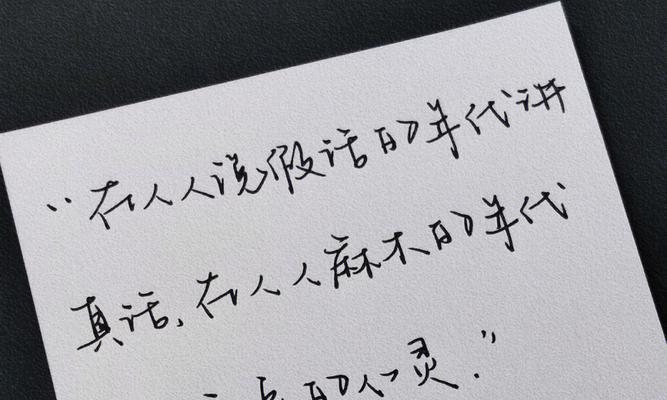 “在人人说假话的年代讲
真话,在人人麻木的年代
的心灵.”